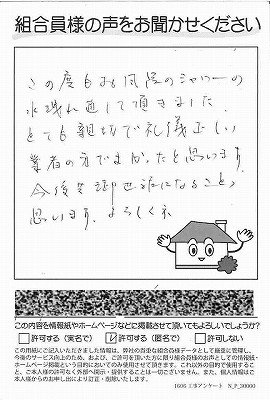 組合員様の声をお聞かせください
この度もお風呂のシャワーの
水残れ直して頂きました
とても親切で礼儀正しい
業者の方でよかったと思います
今後共御世話になることと
思います。よろしくネ
この内容を情報紙やホームページなどに掲載させて頂いてもよろしいでしょうか?
許可する(実名で) 許可する(匿名で) 許可しない
この用紙にご記入いただきました情報は、弊社の貴重な組合員様データとして厳重に管理し、
今後のサービス向上のため、および、ご許可を頂いた方に限り組合員様のお声としての情報紙・
ホームページ掲載という目的においてのみ使用させて頂きます。これ以外の目的で使用するこ
と、ご本人様の許可なく外部へ開示・提供することは一切ございません。また、個人情報はご
本人様からのお申し出により訂正・削除いたします。
1606 工事アンケート N_P_30000